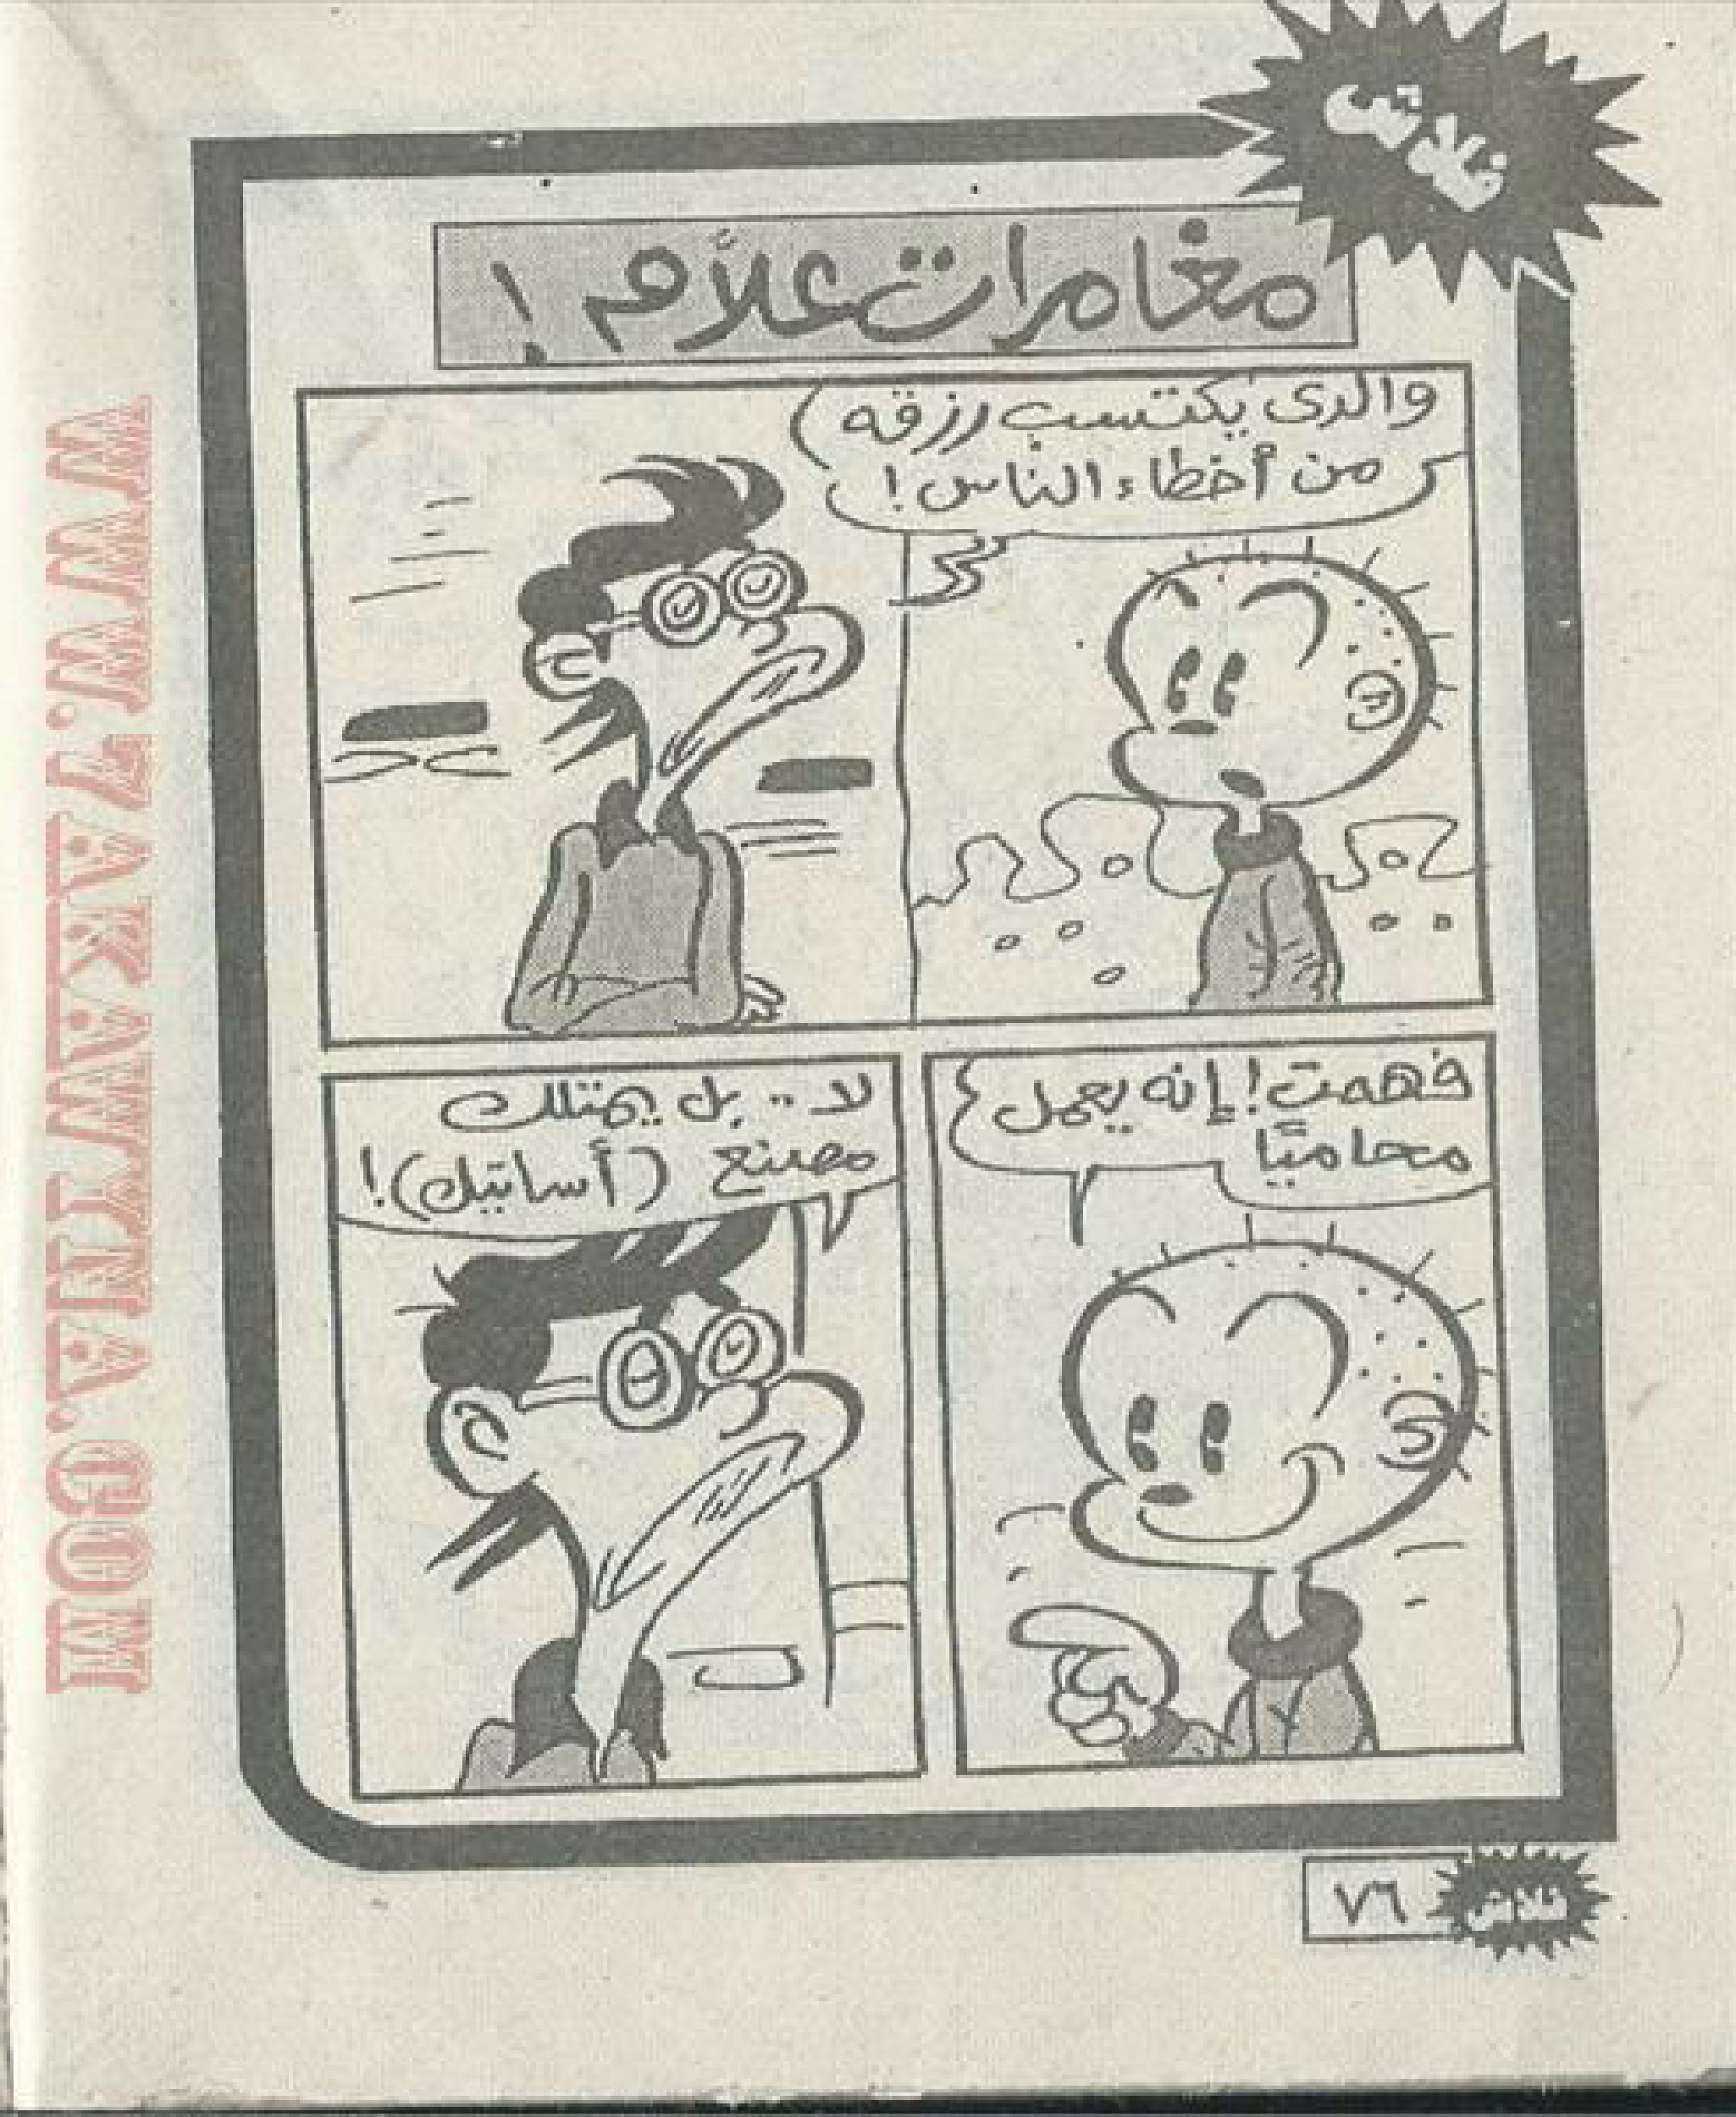 خالتى
مغامرات علاّم !
والدى يكتسب رزقه
من أخطاء الناس !
فهمت ! إنه يعمل
محاميًا
لا .. بل يمتلك
مصنع (أساتيك) !
٧٦
فلاش
WWW.7AKAWYNA.COM